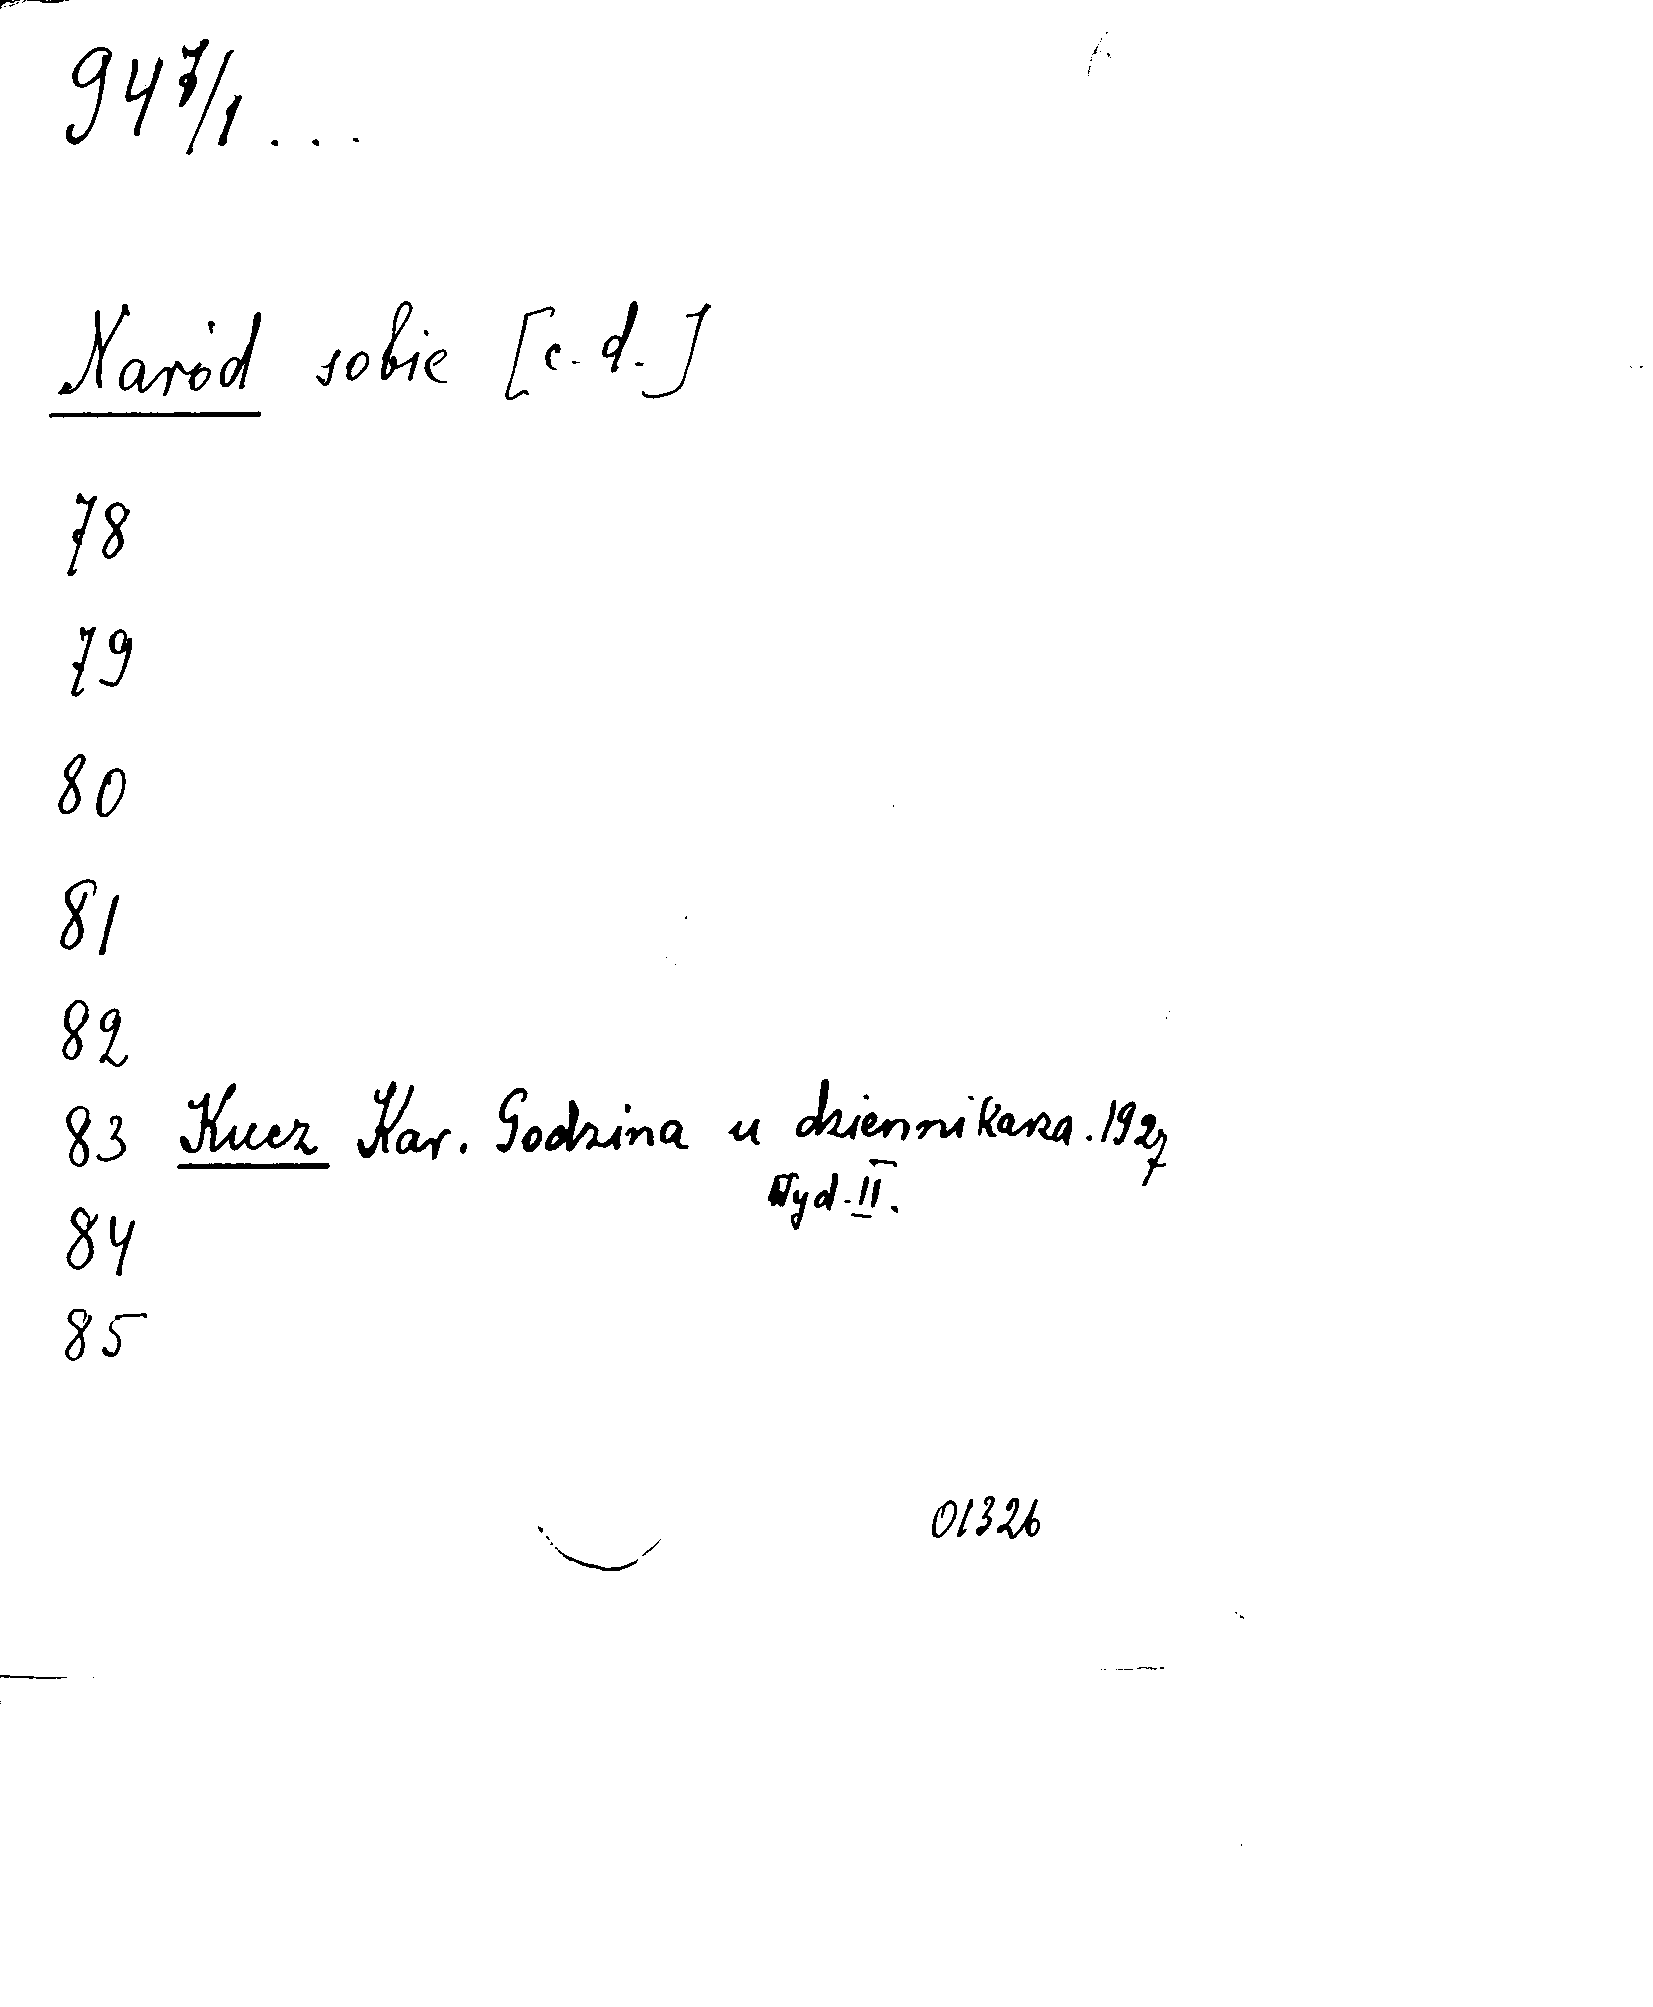 94 7/1 ...
Naród sobie [c.d.]
78
79
80
81
82
83 Kucz Kar. Godzina u dziennikarza. 1927
Wyd. II.
84
85
01326